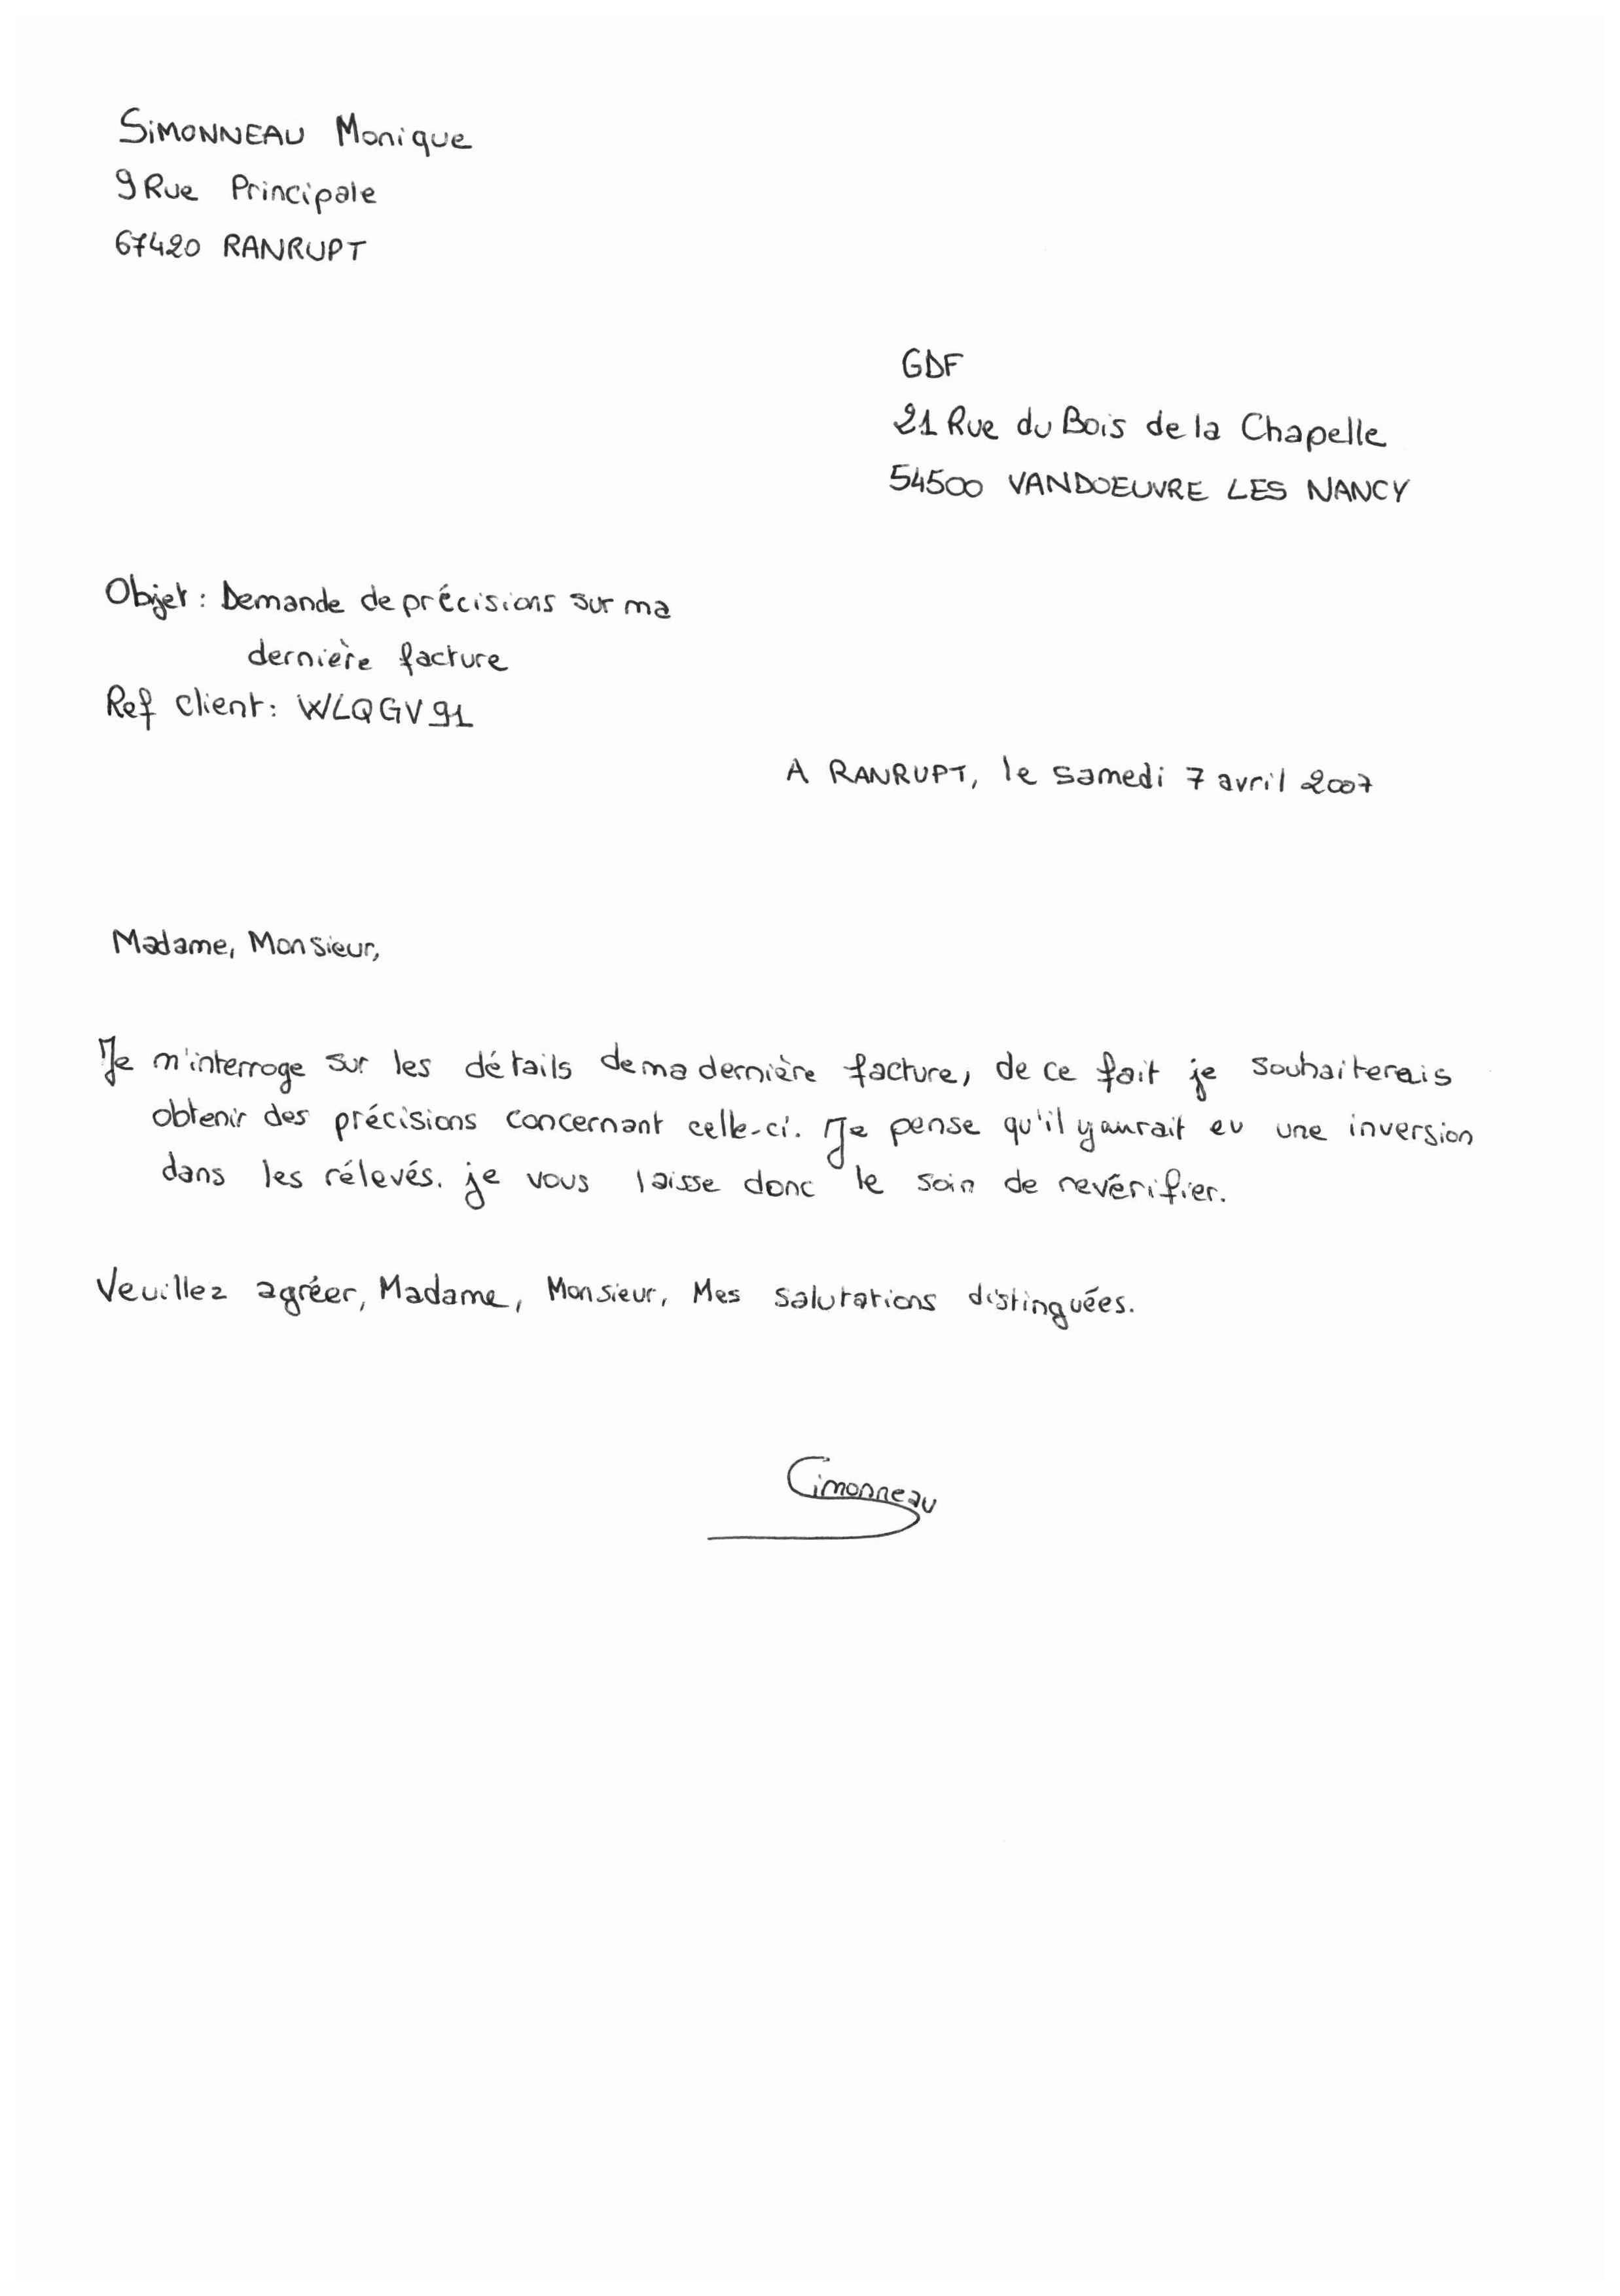 SIMONNEAU Monique
9 Rue Principale
67420 RANRUPT
GDF
21 Rue du Bois de la Chapelle
54500 VANDOEUVRE LES NANCY
Objet : Demande de précisions sur ma
dernière facture
Ref client : WLQGV91
A RANRUPT, le samedi 7 avril 2007
Madame, Monsieur,
Je m'interroge sur les détails de ma dernière facture, de ce fait je souhaiterais
obtenir des précisions concernant celle-ci. Je pense qu'il y aurait eu une inversion
dans les rélevés. je vous laisse donc le soin de revérifier.
Veuillez agréer, Madame, Monsieur, Mes salutations distinguées.
Simonneau